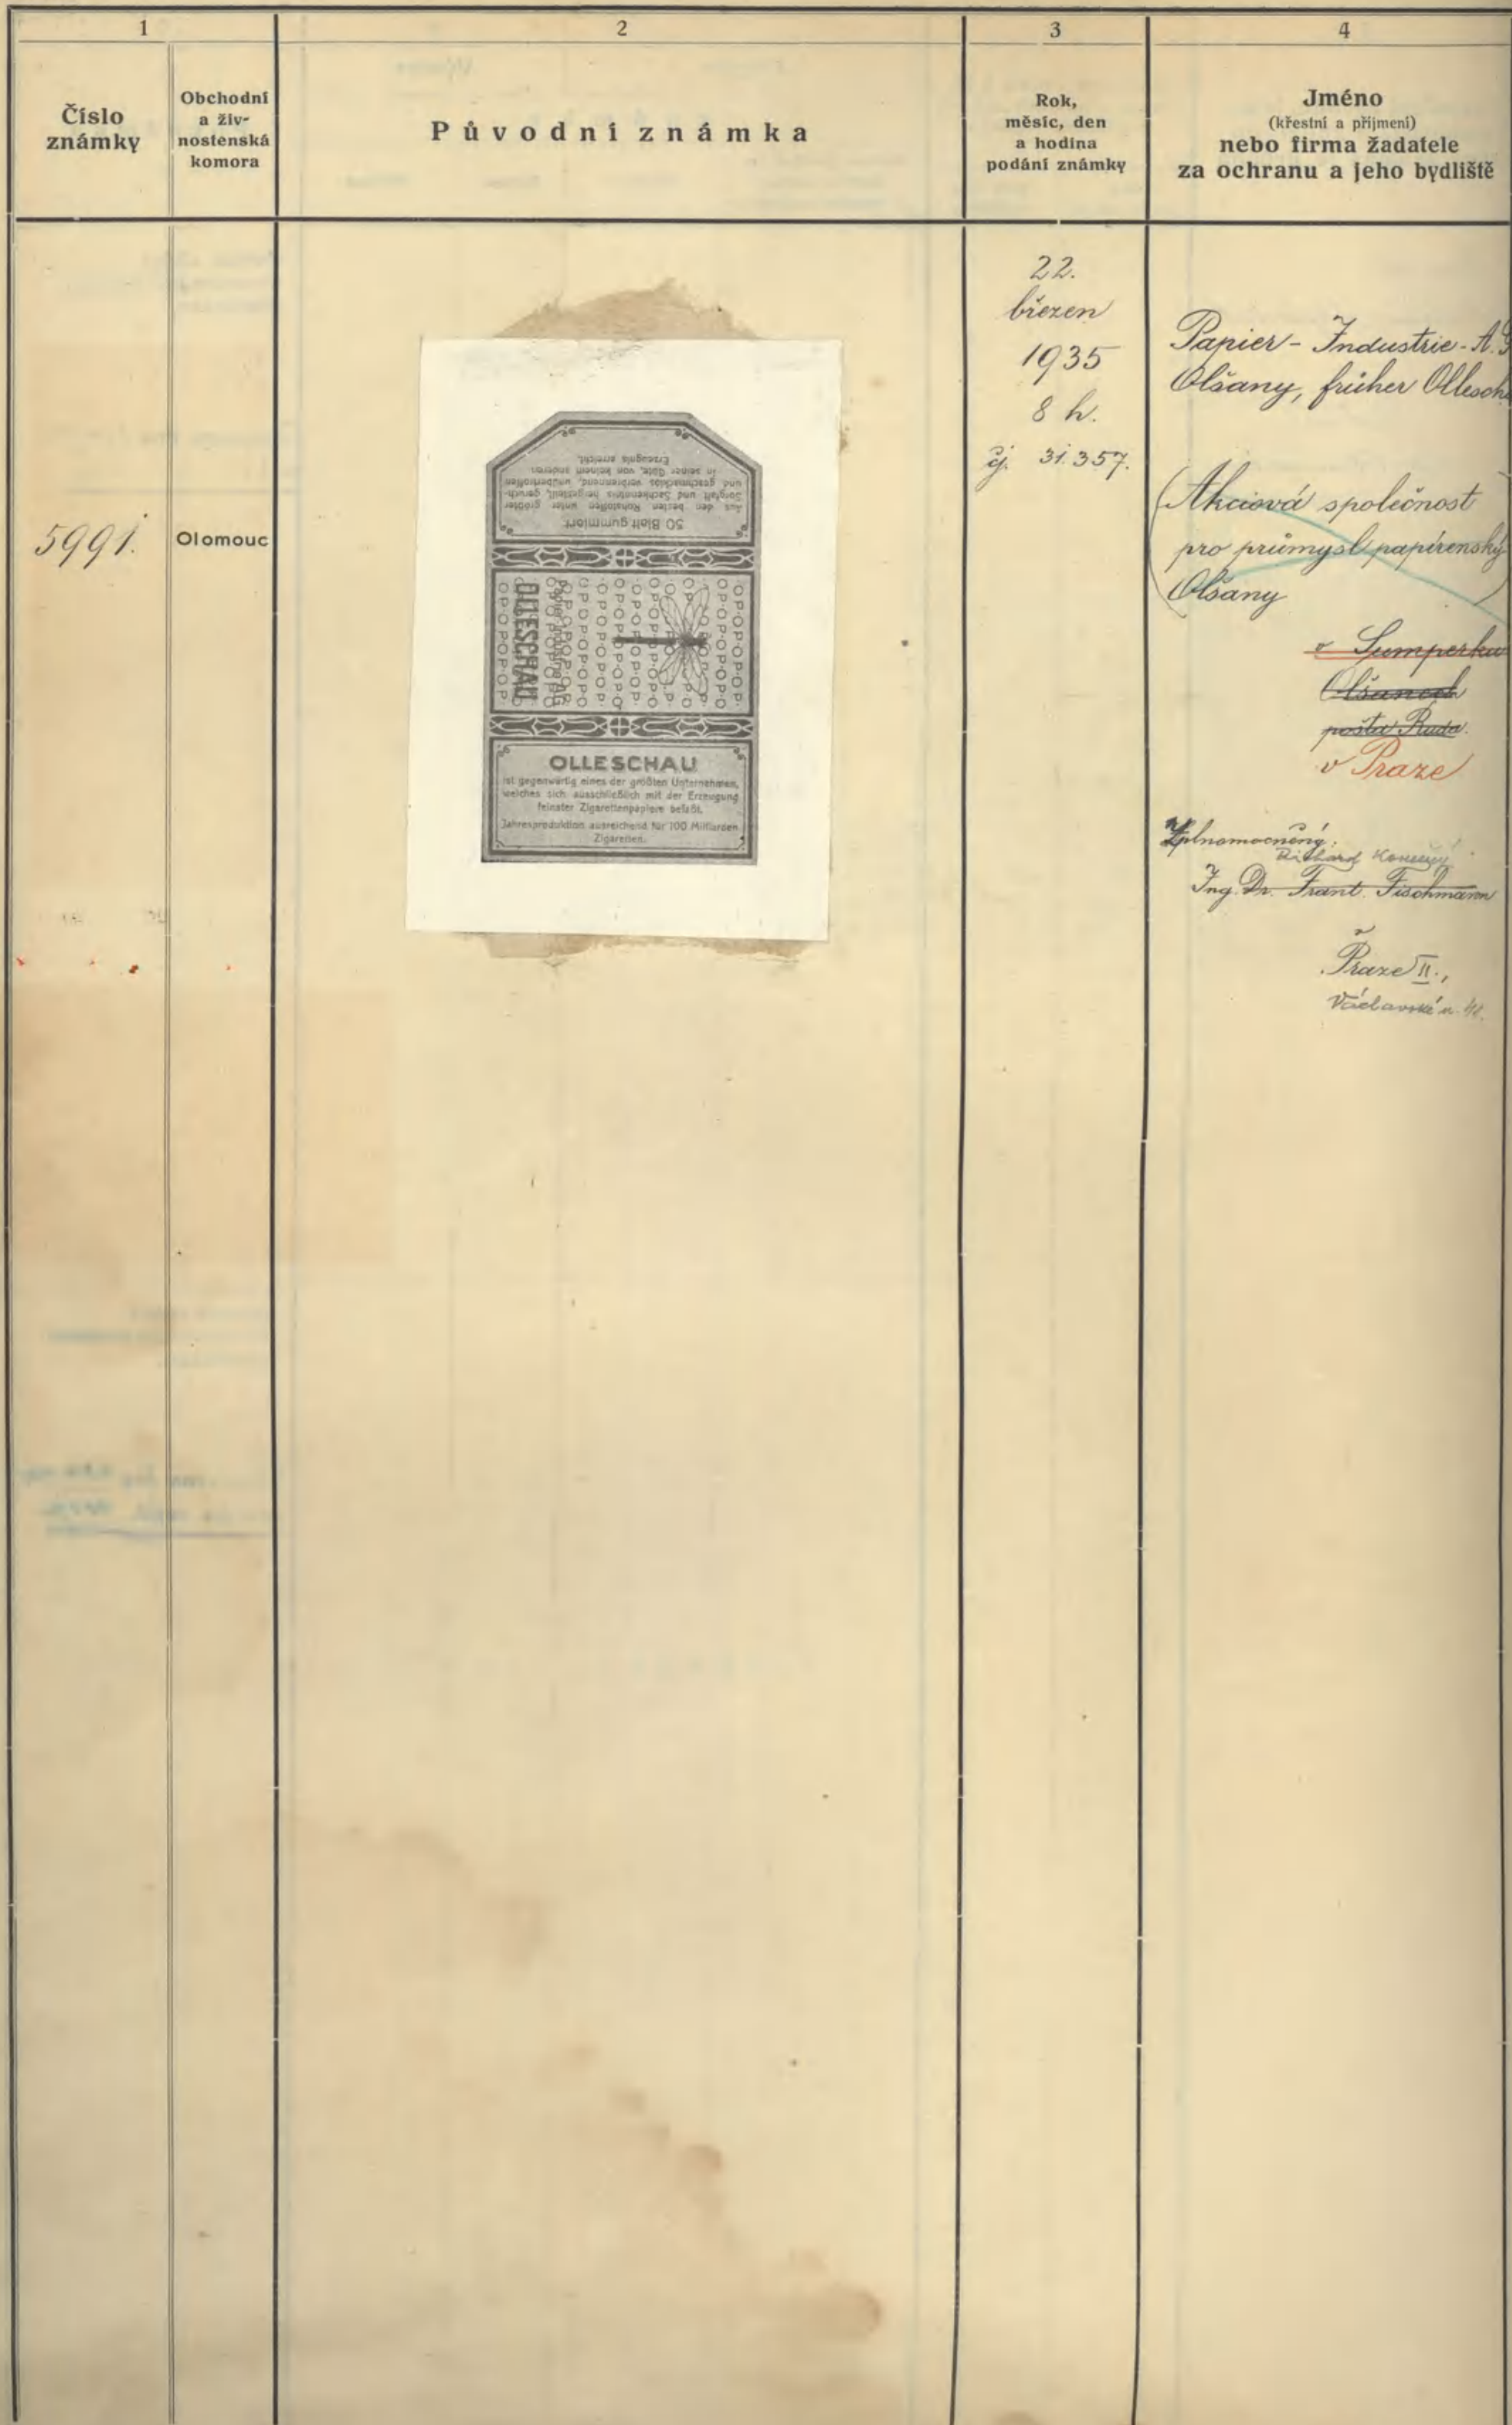 1
2
3
4
Číslo
známky
Obchodní
a živ-
nostenská
komora
Původní známka
Rok,
měsíc, den
a hodina
podání známky
Jméno
(křestní a příjmení)
nebo firma žadatele
za ochranu a jeho bydliště
5991.
Olomouc
50 Blatt gummiert
Aus den besten Rohstoffen unter größter
Sorgfalt und Sachkenntnis hergestellt, geruch-
und geschmacklos verbrennend, unübertroffen
in seiner Güte, von keinem anderen
Erzeugnis erreicht.
OLLESCHAU
Papier-Industrie AG
OLLESCHAU
ist gegenwärtig eines der größten Unternehmen,
welches sich ausschließlich mit der Erzeugung
feinster Zigarettenpapiere befaßt.
Jahresproduktion ausreichend für 100 Milliarden
Zigaretten.
22.
březen
1935
8 h.
čj. 31.357.
Papier - Industrie - A.G
Olšany, früher Ollesch
(Akciová společnost
pro průmysl papírenský
Olšany)
v Šumperku
Olšanech
pošta Ruda.
v Praze
Zplnomocněný:
Richard Konečný
Ing. Dr. Frant. Fischmann
v
Praze II.,
Václavské n.